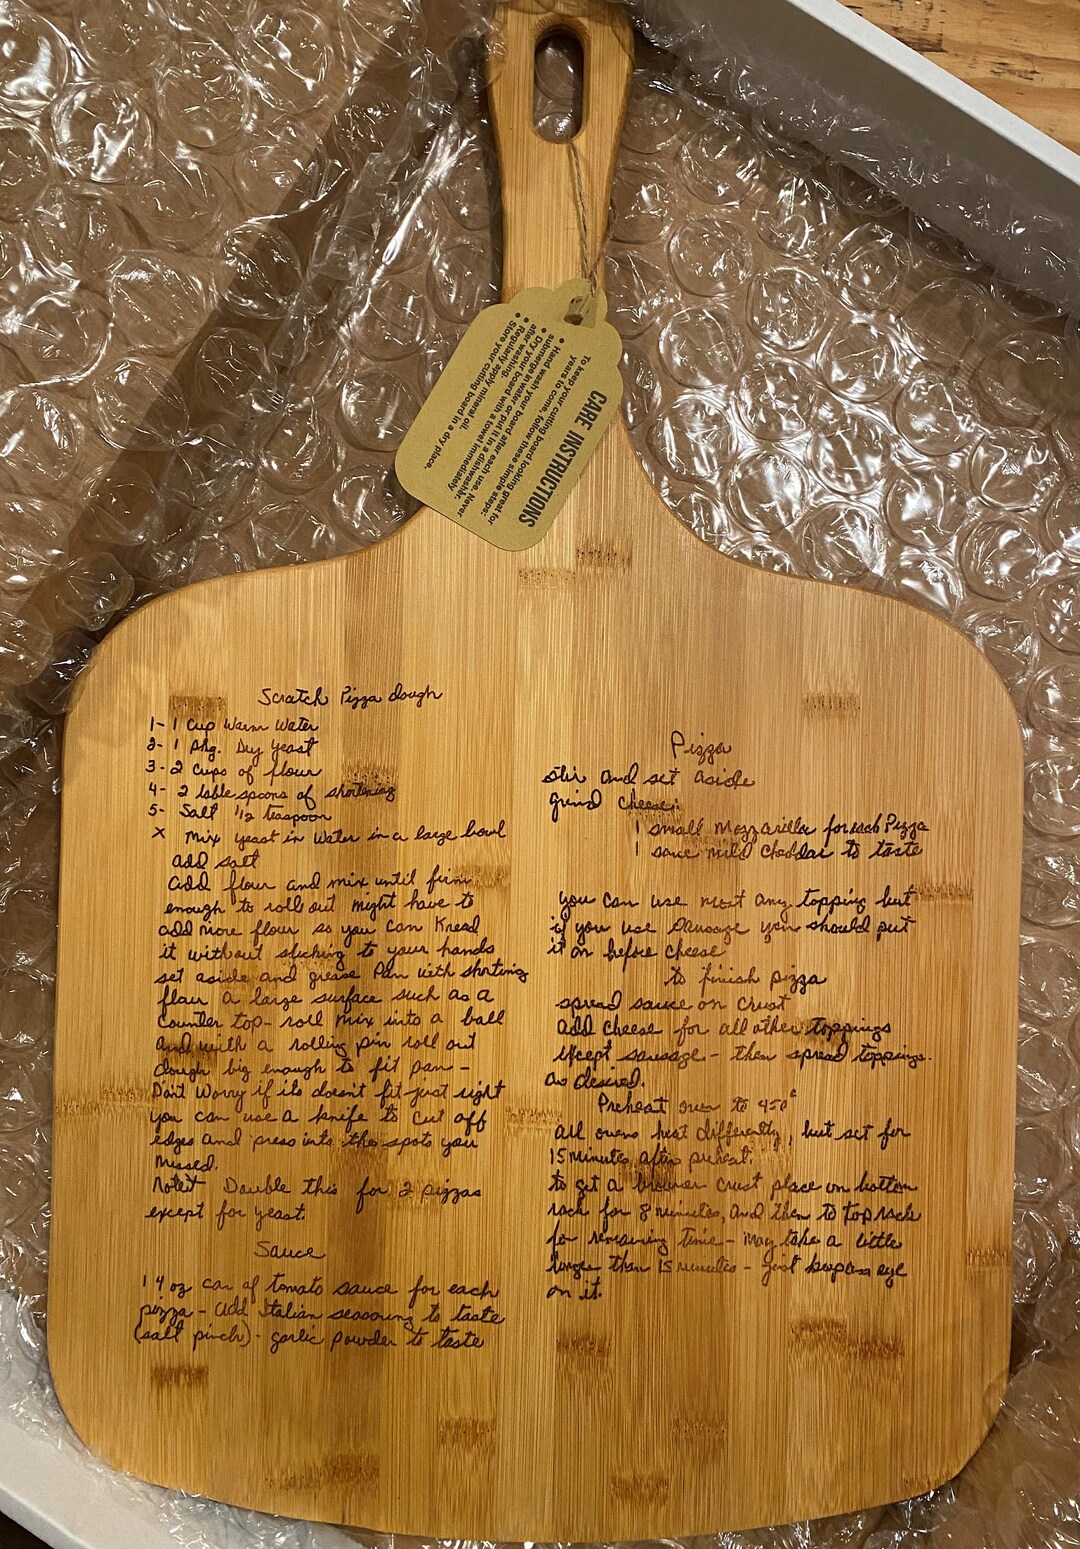 CARE INSTRUCTIONS
To keep your cutting board looking great for
years to come, follow these simple steps:
• Hand wash your board after each use. Never
submerge in water or put it in a dishwasher.
• Dry your board with a towel immediately
after washing.
• Regularly apply mineral oil.
• Store your cutting board in a dry place.
Scratch Pizza dough
1- 1 Cup Warm Water
2- 1 pkg. Dry yeast
3- 2 Cups of flour
4- 2 tablespoons of shortening
5- Salt 1/2 teaspoon
X Mix yeast in Water in a large bowl
add salt
add flour and mix until firm
enough to roll out might have to
add more flour so you can Knead
it without sticking to your hands
set aside and grease Pan with shorting
flour a large surface such as a
counter top- roll mix into a ball
and with a rolling pin roll out
dough big enough to fit pan -
Don't Worry if its doesn't fit just right
you can use a knife to cut off
edges and press into the spots you
missed.
Note: Double this for 2 pizzas
except for yeast.
Sauce
1 4 oz can of tomato sauce for each
pizza - add Italian seasoning to taste
(salt pinch) - garlic powder to taste
Pizza
stir and set aside
grind cheese:
1 small Mozzarilla for each Pizza
1 same mild cheddar to taste
you can use most any topping but
if you use sausage you should put
it on before cheese
to finish pizza
spread sauce on crust
add cheese for all other toppings
except sausage - then spread toppings.
as desired.
Preheat oven to 450°
all ovens heat differently, but set for
15 minutes after preheat.
to get a browner crust place on bottom
rack for 8 minutes, and then to top rack
for remaining time - may take a little
longer than 15 minutes - just keep an eye
on it.